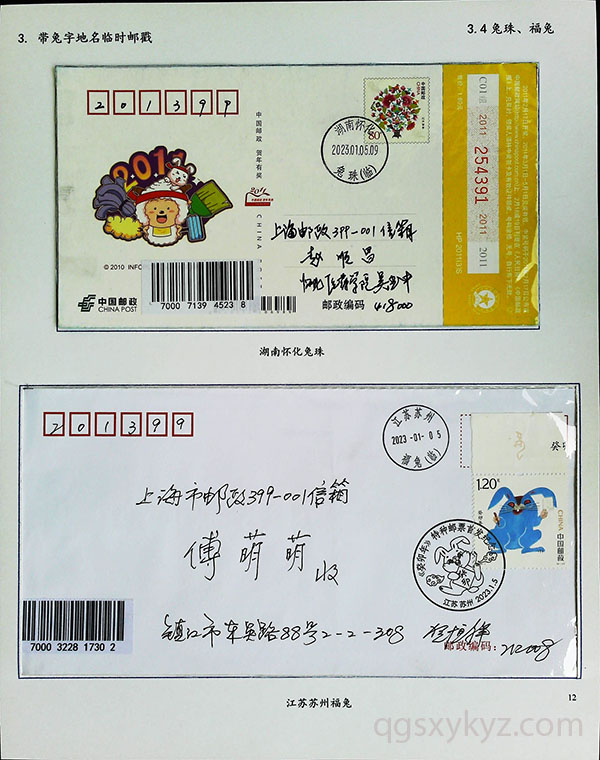 3. 带兔字地名临时邮戳
3.4 兔珠、福兔
201399
中国邮政 贺年有奖
中国邮政
CHINA
80
湖南怀化
2023.01.05.09
兔珠(临)
2011
2011
254391
2011
2011
HP 2011(13)S
上海邮政399-001信箱
© 2010 INFO
7000 7139 4523 8
中国邮政
CHINA POST
邮政编码 418000
湖南怀化兔珠
201399
江苏苏州
2023-01-05
福兔(临)
癸卯
1.20元
CHINA
中国邮政
上海市邮政399-001信箱
傅萌萌 收
《癸卯年》特种邮票首发纪念
江苏苏州 2023.1.5
7000 3228 1730 2
镇江市东吴路88号2-2-308
邮政编码: 212008
江苏苏州福兔
12
qgsxykyz.com